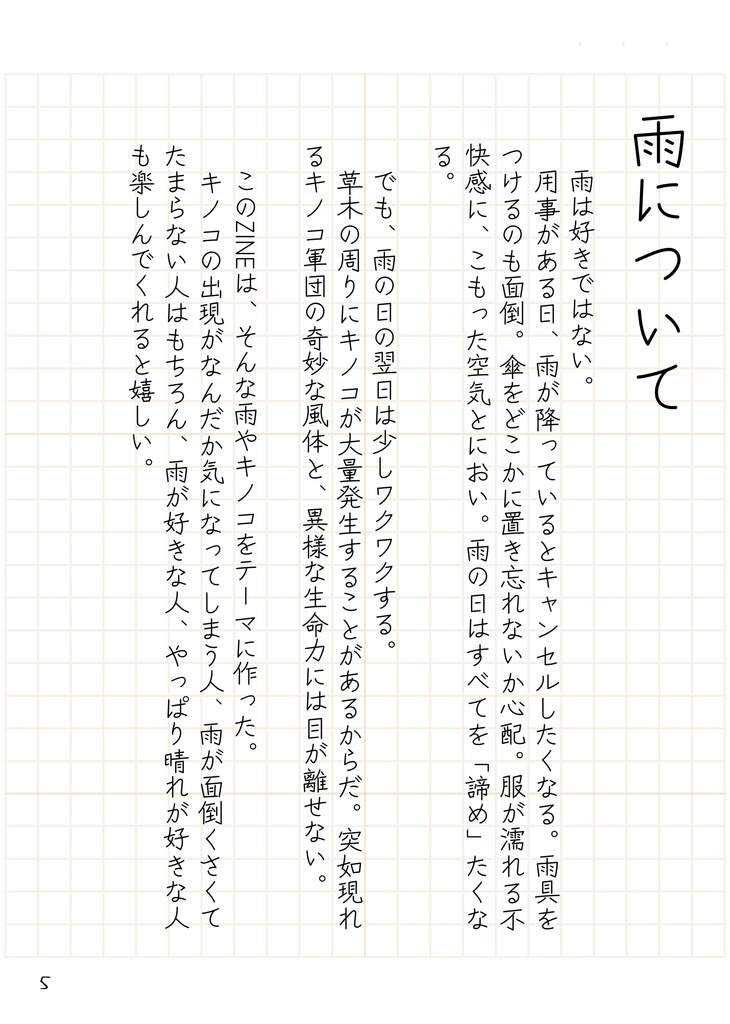 雨について
雨は好きではない。
用事がある日、雨が降っているとキャンセルしたくなる。雨具を
つけるのも面倒。傘をどこかに置き忘れないか心配。服が濡れる不
快感に、こもった空気とにおい。雨の日はすべてを「諦め」たくな
る。
でも、雨の日の翌日は少しワクワクする。
草木の周りにキノコが大量発生することがあるからだ。突如現れ
るキノコ軍団の奇妙な風体と、異様な生命力には目が離せない。
このZINEは、そんな雨やキノコをテーマに作った。
キノコの出現がなんだか気になってしまう人、雨が面倒くさくて
たまらない人はもちろん、雨が好きな人、やっぱり晴れが好きな人
も楽しんでくれると嬉しい。
5